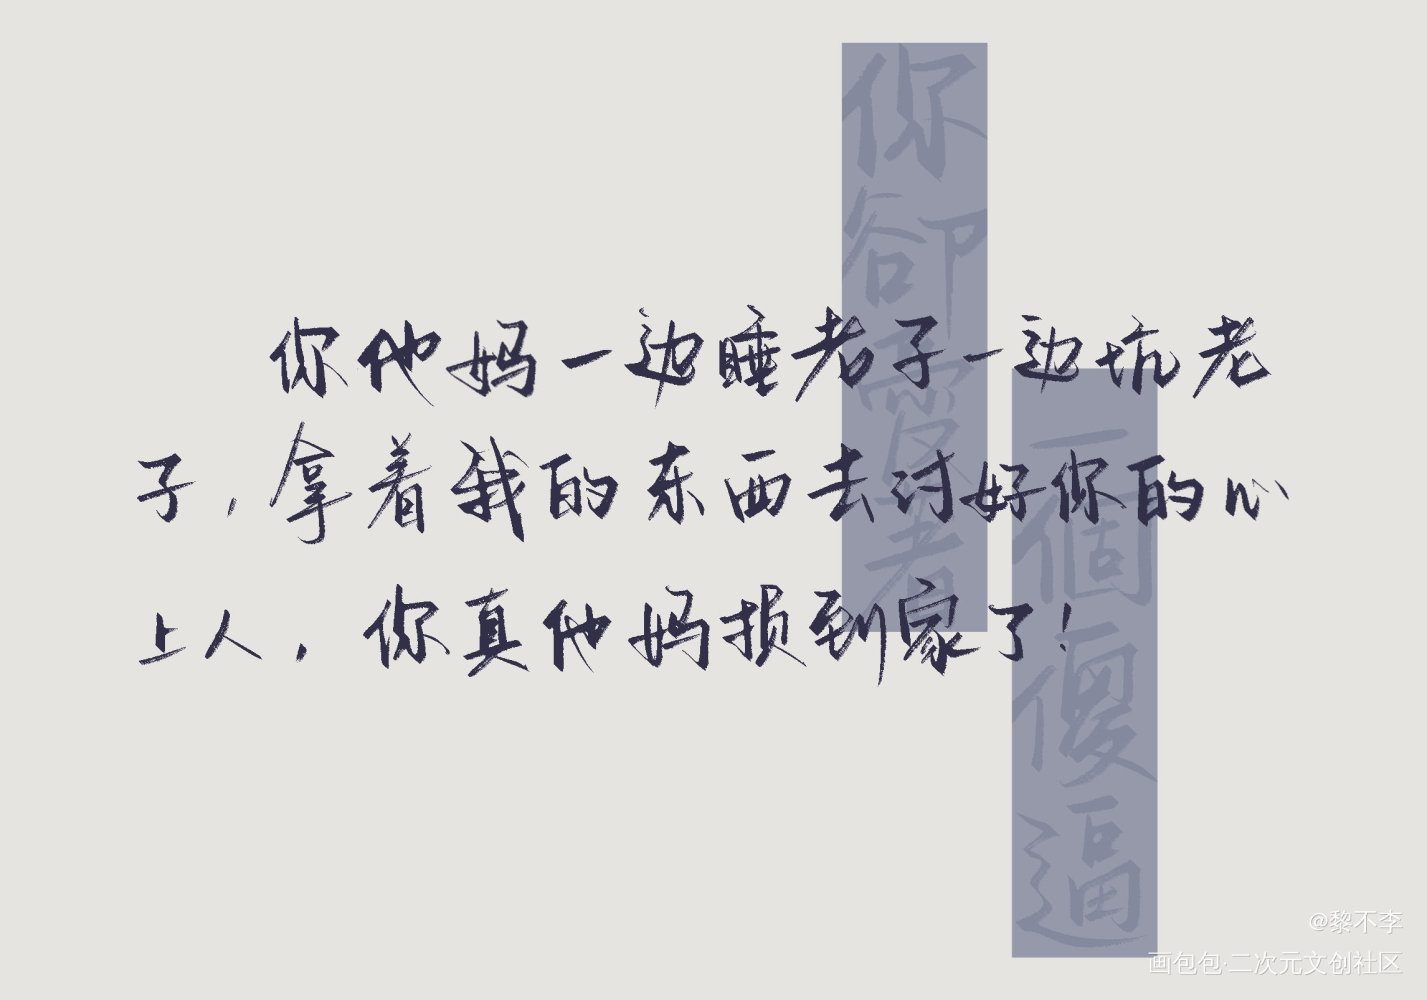 你他妈一边睡老子一边坑老
子，拿着我的东西去讨好你的心
上人，你真他妈损到家了！
你卻愛着
一個傻逼
@黎不李
画包包·二次元文创社区